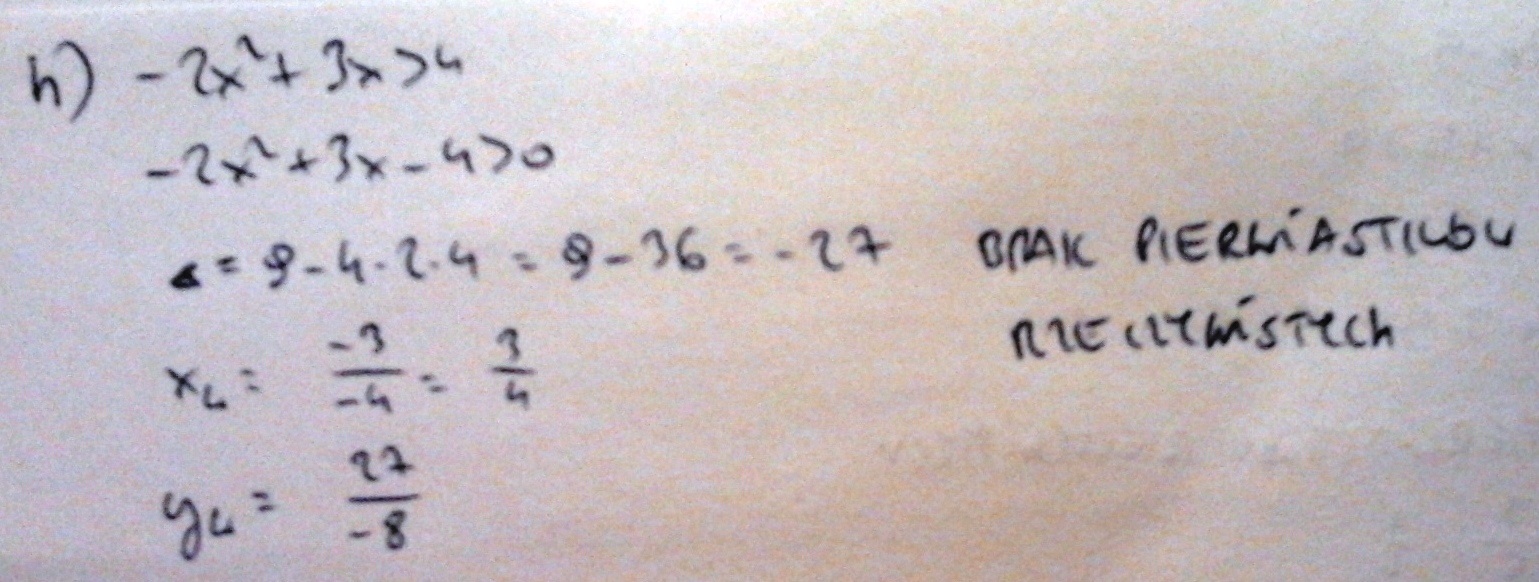 h) -2x²+3x>4
-2x²+3x-4>0
Δ = 9-4·2·4 = 9-36 = -27 BRAK PIERWIASTKÓW
RZECZYWISTYCH
x_w = -3/-4 = 3/4
y_w = 27/-8